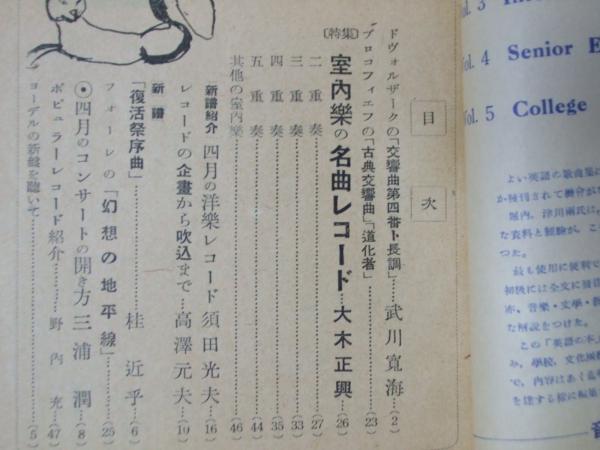 目次
ドヴォルザークの「交響曲第四番ト長調」……武川寬海…(2)
プロコフィエフの「古典交響曲」「道化者」……(23)
〔特集〕室內樂の名曲レコード…大木正興…(26)
二重奏……(27)
三重奏……(33)
四重奏……(35)
五重奏……(44)
其他の室內樂……(46)
新譜紹介 四月の洋樂レコード 須田光夫…(16)
レコードの企畫から吹込まで…高澤元夫…(10)
新譜
「復活祭序曲」……桂近乎…(6)
フォーレの「幻想の地平線」……(25)
◉四月のコンサートの開き方 三浦潤…(8)
ポピュラーレコード紹介………野內充…(47)
ヨーデルの新盤を聽いて……(5)
Vol. 3
Vol. 4 Senior E
Vol. 5 College
よい英語の歌曲集に
か種刊されて機會が
堀內、津川兩氏は、
な資料と經驗が、こ
つた。
最も使用に便利で
初級には全文に發音
亦、音樂・文學・
な解說をつけた。
この「英語の本」
み、學校、文化團
で、內容はあく
を達する樣に編集
音